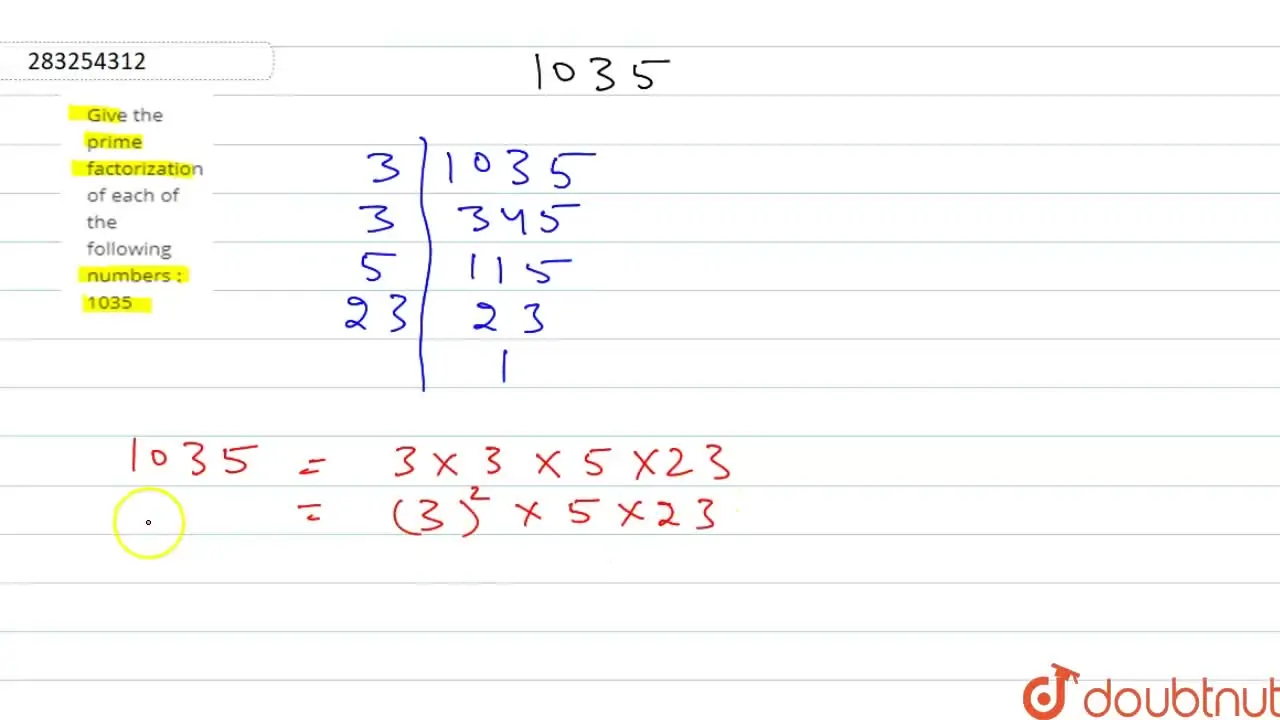 283254312
1035
Give the
prime
factorization
of each of
the
following
numbers :
1035
3 | 1035
3 | 345
5 | 115
23 | 23
| 1
1035 = 3 × 3 × 5 × 23
= (3)² × 5 × 23
doubtnut